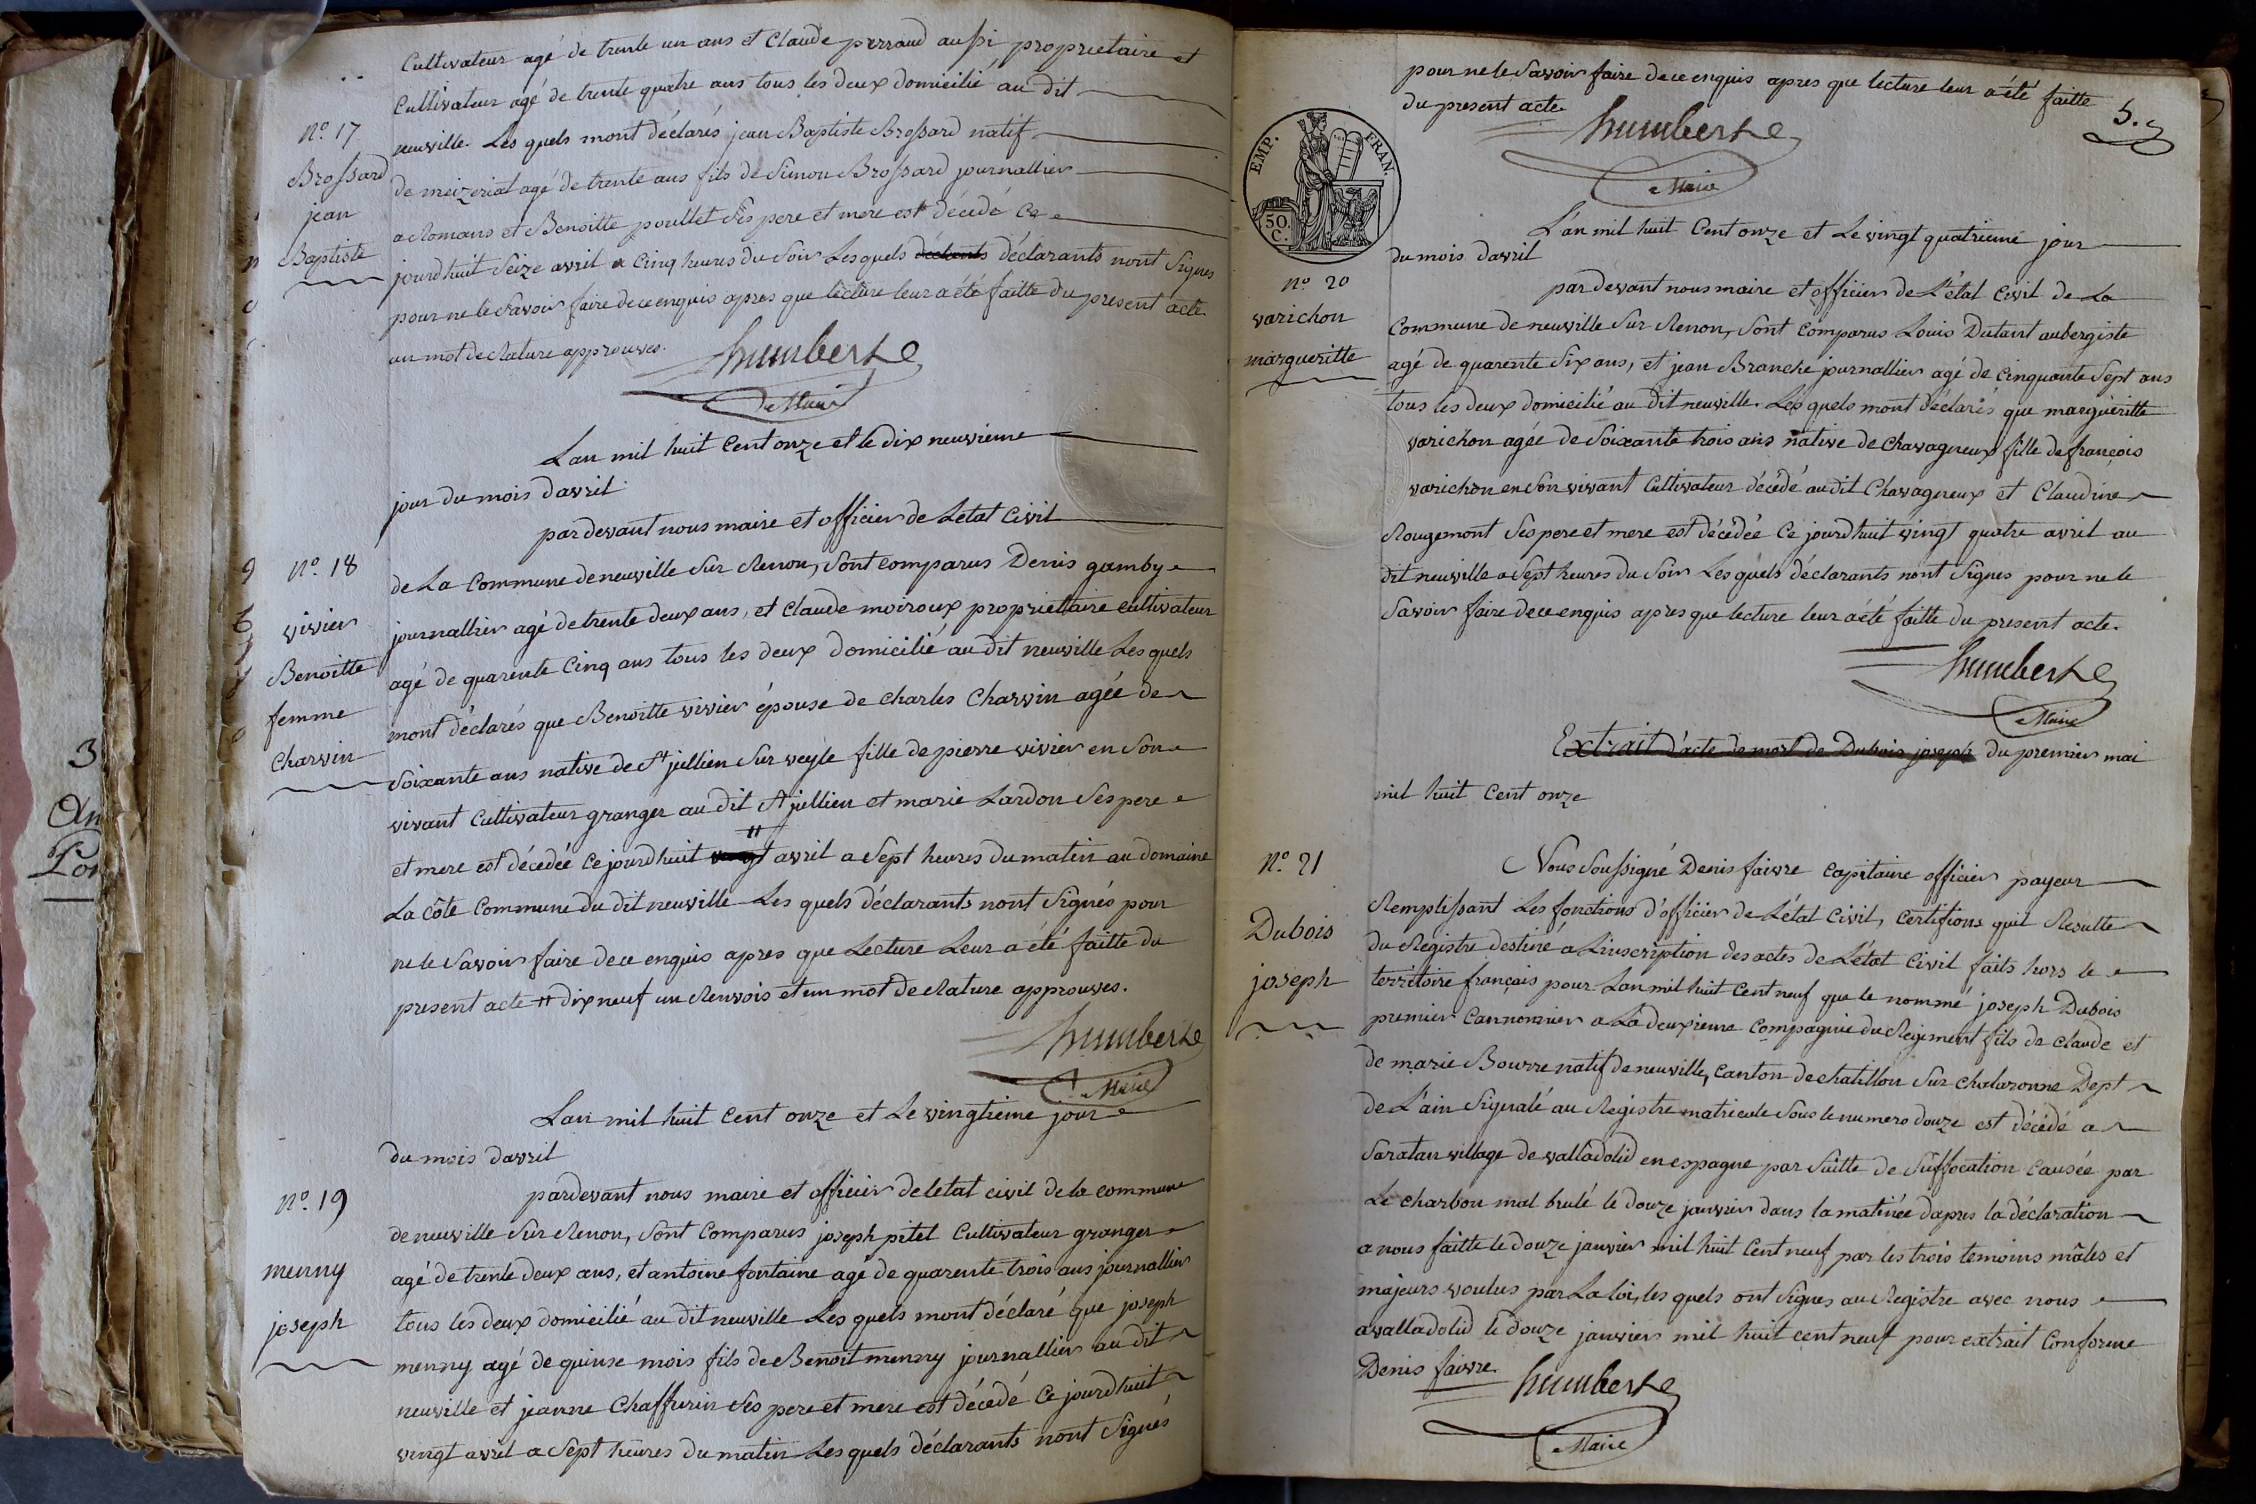 Cultivateur agé de trente un ans et Claude perraud aussi proprietaire et
Cultivateur agé de trente quatre ans tous les deux domicilié au dit
neuville. Les quels mont déclarés jean Baptiste Brossard natif
de meizeriat agé de trente ans fils de Simon Brossard journallier
a Romans et Benoitte poullet Ses pere et mere est décédé Ce
jourdhuit Seize avril a Cinq heures du Soir Lesquels déclarants nont Signes
pour ne le Savoir faire de ce enquis apres que lecture leur a été faitte du present acte
un mot de Rature approuves.
humbert
Maire
N.o 17
Brossard
jean
Baptiste
Lan mil huit Cent onze et le dix neuvieme
jour du mois davril
pardevant nous maire et officier de Letat Civil
de La Commune de neuville Sur Renon, Sont comparus Denis gamby
journallier agé de trente deux ans, et Claude moiroux proprietaire cultivateur
agé de quarente Cinq ans tous les deux domicilié au dit neuville Les quels
mont déclarés que Benoitte vivier épouse de Charles Charvin agée de
Soixante ans native de St jullien Sur veyle fille de pierre vivier en Son
vivant Cultivateur granger au dit St jullien et marie Lardon Ses pere
et mere est décedée Ce jourdhuit vingt # avril a Sept heures du matin au domaine
La côte Commune du dit neuville Les quels déclarants nont Signés pour
ne le Savoir faire de ce enquis apres que Lecture Leur a été faitte du
present acte # dix neuf un Renvois et un mot de Rature approuves.
humbert
Maire
N.o 18
vivier
Benoitte
femme
Charvin
Lan mil huit Cent onze et Le vingtieme jour
du mois davril
pardevant nous maire et officier de letat civil de la commune
de neuville Sur Renon, Sont Comparus joseph pitel Cultivateur granger
agé de trente deux ans, et antoine fontaine agé de quarente trois ans journallier
tous les deux domicilié au dit neuville Les quels mont déclaré que joseph
menny agé de quinse mois fils de Benoit menny journallier au dit
neuville et jeanne Chaffurin Ses pere et mere est décédé Ce jourdhuit
vingt avril a Sept heures du matin Les quels déclarants nont Signés
N.o 19
menny
joseph
pour ne le Savoir faire de ce enquis apres que lecture leur a été faitte
du present acte
5.
humbert
Maire
EMP. FRAN.
50
C.
L'an mil huit Cent onze et Le vingt quatrieme jour
du mois davril
par devant nous maire et officier de L'état Civil de La
Commune de neuville Sur Renon, Sont Comparus Louis Dutant aubergiste
agé de quarente Six ans, et jean Branche journallier agé de Cinquante Sept ans
tous les deux domicilié au dit neuville. Les quels mont déclarés que margueritte
varichon agée de Soixante trois ans native de Chavagneux fille de françois
varichon en Son vivant Cultivateur décédé audit Chavagneux et Claudine
Rougemont Ses pere et mere est décédée Ce jourdhuit vingt quatre avril au
dit neuville a Sept heures du Soir Les quels déclarants nont Signes pour ne le
Savoir faire de ce enquis apres que lecture leur a été faitte du present acte.
humbert
Maire
N.o 20
varichon
margueritte
Extrait d'acte de mort de Dubois joseph du premier mai
mil huit Cent onze
Nous Soussigné Denis faivre Capitaine officier payeur
Remplissant Les fonctions d'officier de L'état Civil, Certifions quil Resulte
du Registre destiné a L'inscription des actes de L'état Civil faits hors le
territoire français pour Lan mil huit Cent neuf que le nommé joseph Dubois
premier Cannonnier a La deuxieme Compagnie du Regiment fils de claude et
de marie Bourre natif de neuville, Canton de chatillon Sur chalaronne Dept
de L'ain Signalé au Registre matricule Sous le numero douze est décédé a
Saratan village de valladolid en espagne par Suitte de Suffocation Causée par
Le charbon mal brulé le douze janvier dans la matinée dapres la déclaration
a nous faitte le douze janvier mil huit Cent neuf par les trois temoins mâles et
majeurs voulus par La loi, les quels ont Signes au Registre avec nous
a valladolid le douze janvier mil huit cent neuf pour extrait Conforme
Denis faivre
humbert
Maire
N.o 21
Dubois
joseph